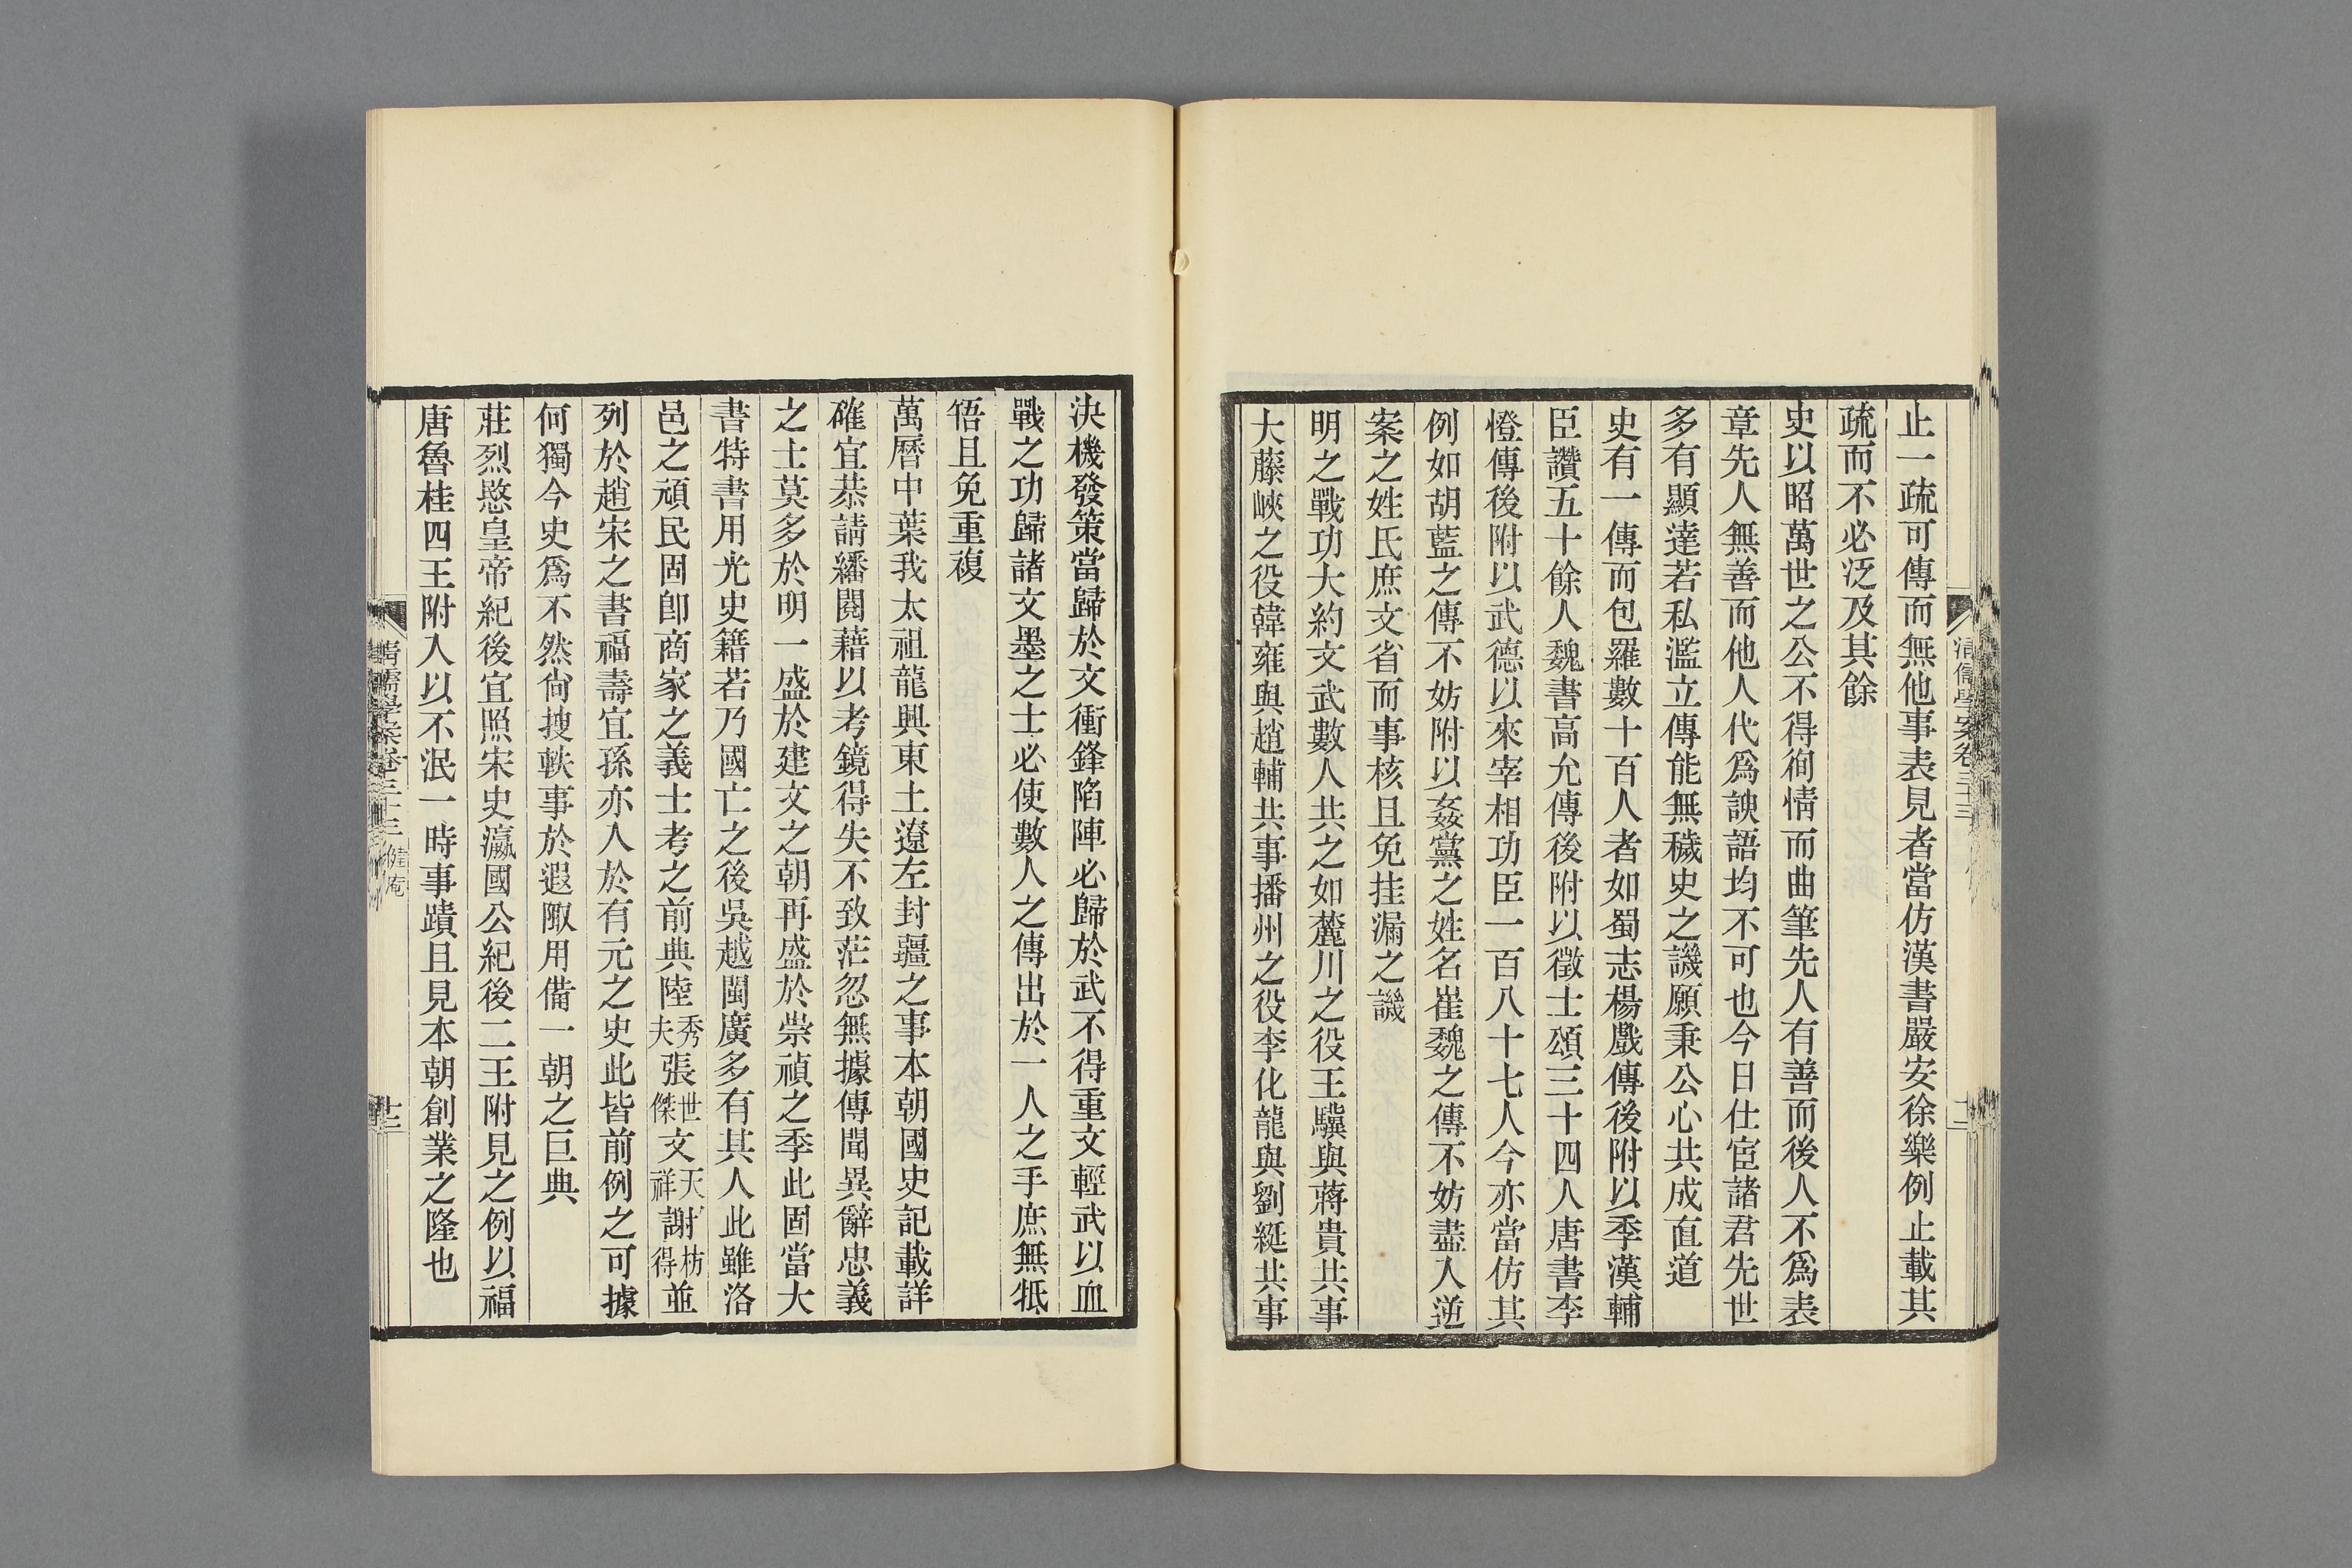 止一疏可傳而無他事表見者當仿漢書嚴安徐樂例止載其
疏而不必泛及其餘
史以昭萬世之公不得徇情而曲筆先人有善而後人不爲表
章先人無善而他人代爲諛語均不可也今日仕宦諸君先世
多有顯達若私濫立傳能無穢史之譏願秉公心共成直道
史有一傳而包羅數十百人者如蜀志楊戲傳後附以季漢輔
臣讚五十餘人魏書高允傳後附以徵士頌三十四人唐書李
憕傳後附以武德以來宰相功臣一百八十七人今亦當仿其
例如胡藍之傳不妨附以姦黨之姓名崔魏之傳不妨盡入逆
案之姓氏庶文省而事核且免挂漏之譏
明之戰功大約文武數人共之如麓川之役王驥與蔣貴共事
大藤峽之役韓雍與趙輔共事播州之役李化龍與劉綎共事
清儒學案卷三十三
十二
決機發策當歸於文衝鋒陷陣必歸於武不得重文輕武以血
戰之功歸諸文墨之士必使數人之傳出於一人之手庶無牴
牾且免重複
萬曆中葉我太祖龍興東土遼左封疆之事本朝國史記載詳
確宜恭請繙閱藉以考鏡得失不致茫忽無據傳聞異辭忠義
之士莫多於明一盛於建文之朝再盛於崇禎之季此固當大
書特書用光史籍若乃國亡之後吳越閩廣多有其人此雖洛
邑之頑民固卽商家之義士考之前典陸秀夫張世傑文天祥謝枋得並
列於趙宋之書福壽宜孫亦入於有元之史此皆前例之可據
何獨今史爲不然尙搜軼事於遐陬用備一朝之巨典
莊烈愍皇帝紀後宜照宋史瀛國公紀後二王附見之例以福
唐魯桂四王附入以不泯一時事蹟且見本朝創業之隆也
清儒學案卷三十三 健庵
十二